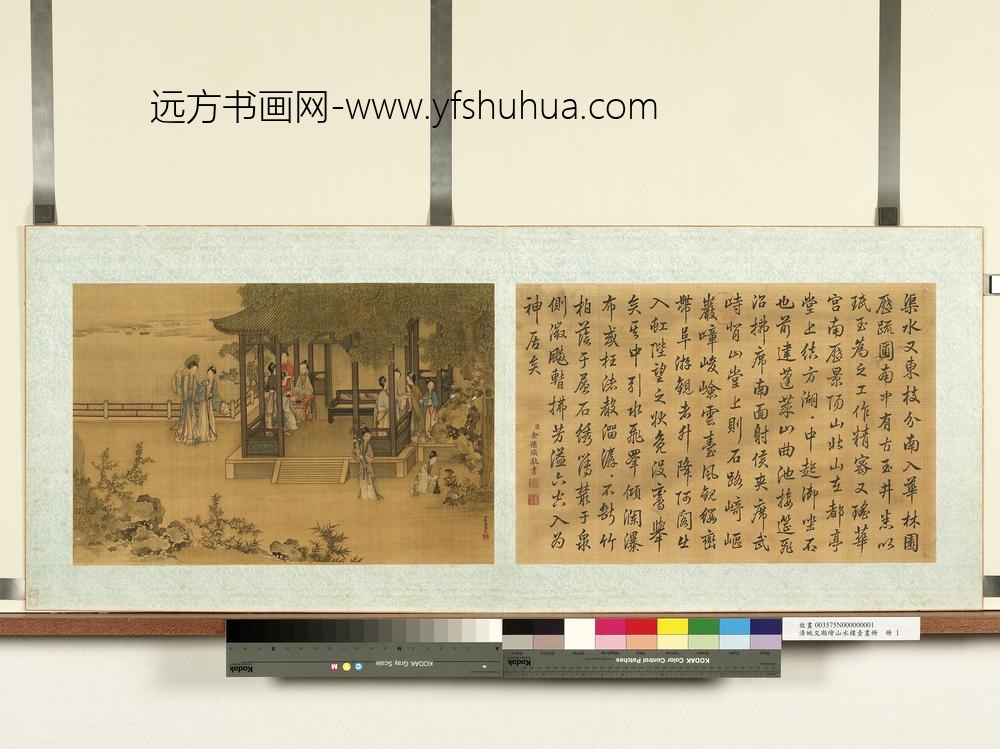 远方书画网-www.yfshuhua.com
渠水又東枝分南入華林園
歷疏圃南中有古玉井悉以
珉玉為之工作精密又瑤華
宮南歷景陽山北山在都亭
堂上結方湖々中起御坐石
也前建蓬萊山曲池接筵飛
沼拂席南面射侯夾席武
峙背山堂上則石路崎嶇
巖嶂峻嶮雲臺風觀纓巒
帶阜游觀者升降阿閣出
入虹陛望之狀鳧沒鸞舉
矣其中引水飛睪傾瀾瀑
布或枉渚聲溜潺々不斷竹
柏蔭于層石繡薄叢于泉
側微飈暫拂芳溢六空入為
神居矣
臣金德瑛敬書
故畫 003575N000000001
清姚文瀚繪山水樓臺畫冊 冊 1
KODAK Gray Scale
Kodak
C Y M
KODAK Color Control Patches
Kodak